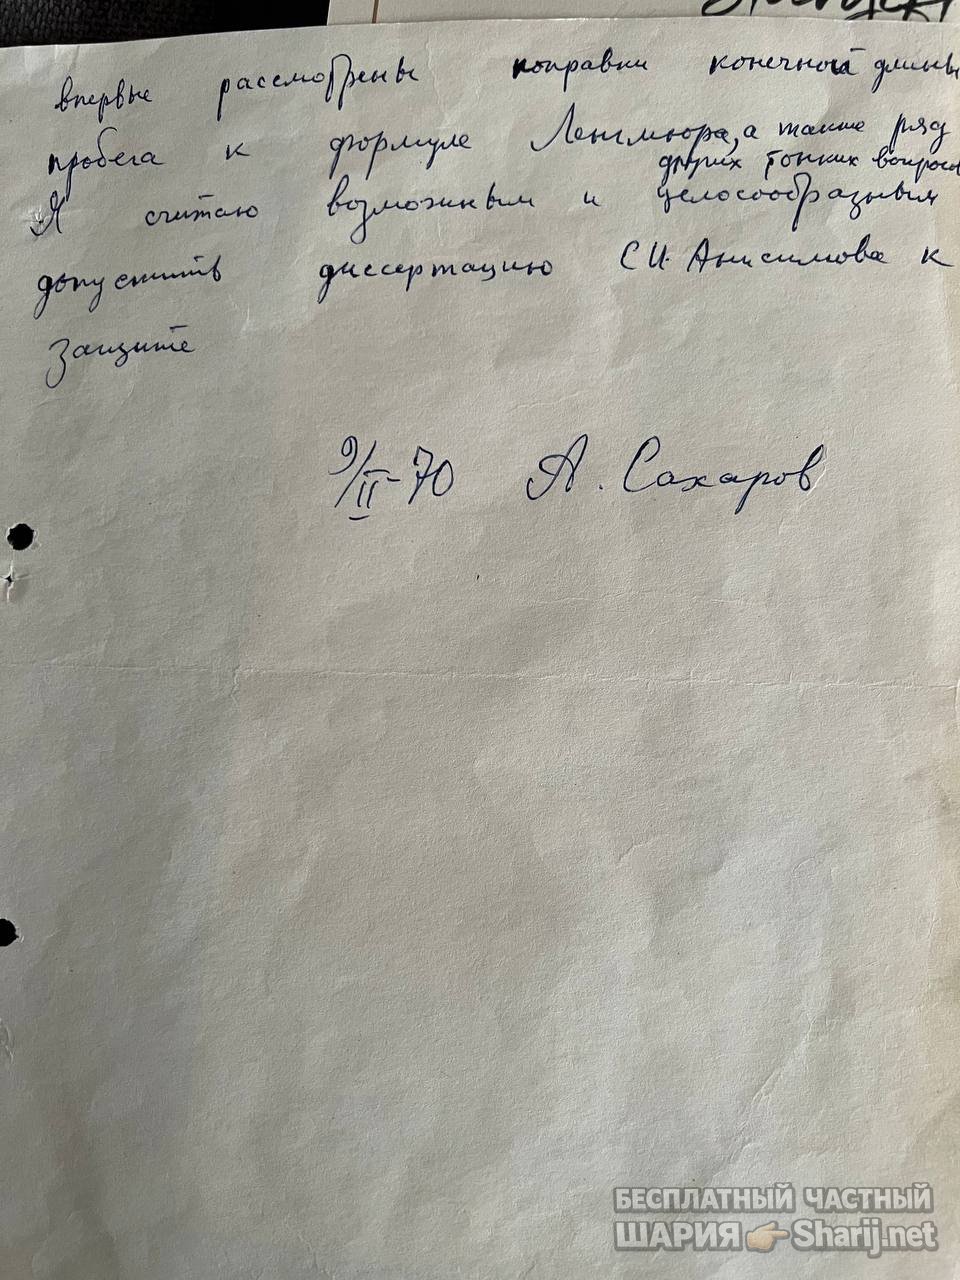 впервые рассмотрены поправки конечной длины
пробега к формуле Ленгмюра, а также ряд
других тонких вопросов
Я считаю возможным и целосообразным
допустить диссертацию С.И. Анисимова к
защите
9/II-70 А. Сахаров
БЕСПЛАТНЫЙ ЧАСТНЫЙ
ШАРИЯ 👉 Sharij.net